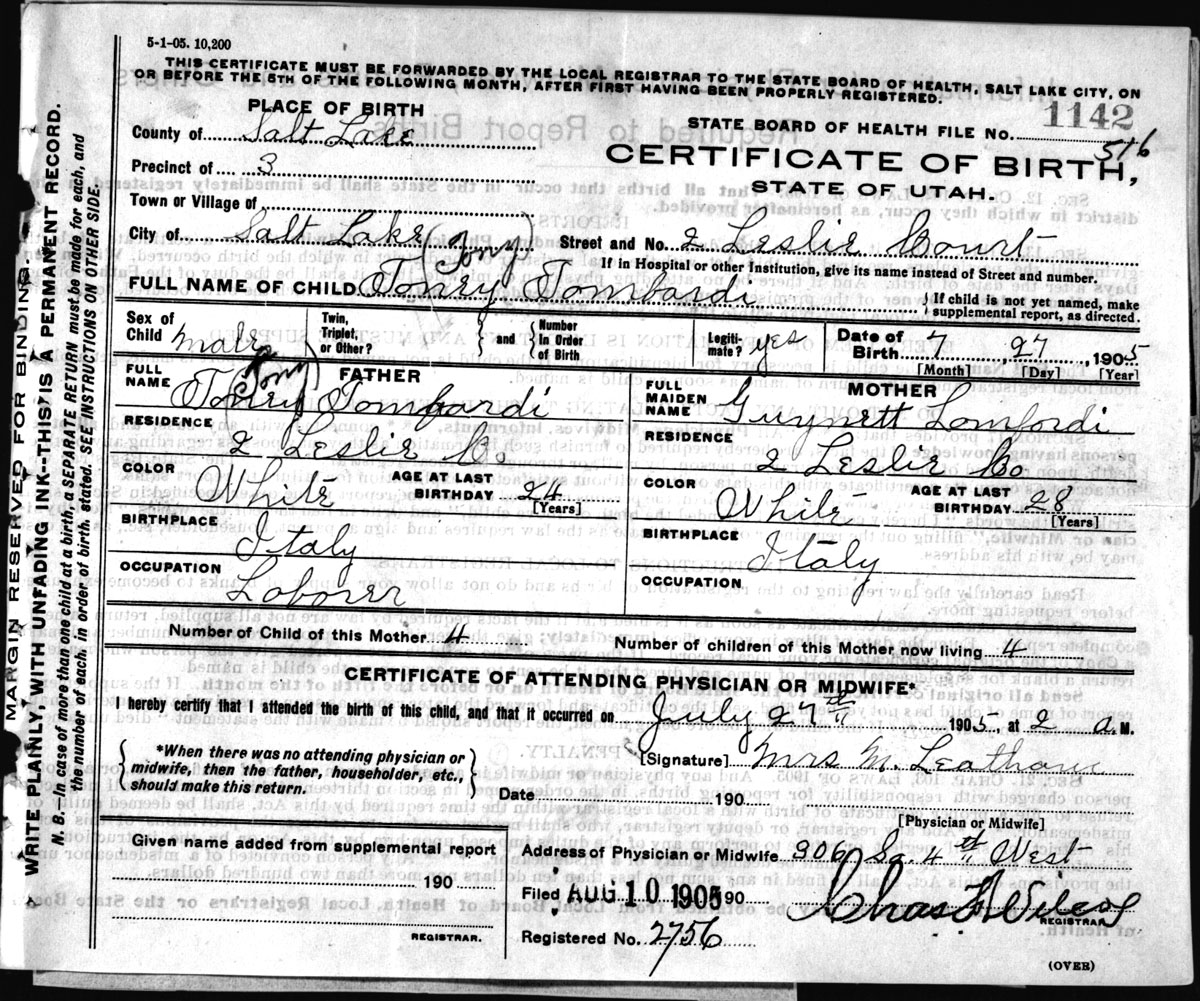 5-1-05. 10,200
THIS CERTIFICATE MUST BE FORWARDED BY THE LOCAL REGISTRAR TO THE STATE BOARD OF HEALTH, SALT LAKE CITY, ON
OR BEFORE THE 5TH OF THE FOLLOWING MONTH, AFTER FIRST HAVING BEEN PROPERLY REGISTERED.
PLACE OF BIRTH
STATE BOARD OF HEALTH FILE NO. 1142
516
County of Salt Lake
CERTIFICATE OF BIRTH,
STATE OF UTAH.
Precinct of 3
Town or Village of
City of Salt Lake
(Tony)
Street and No. 2 Leslie Court
If in Hospital or other Institution, give its name instead of Street and number.
FULL NAME OF CHILD Tonry Tombardi
{If child is not yet named, make supplemental report, as directed.
Sex of Child male
Twin, Triplet, or Other?
} and { Number In Order of Birth
Legitimate? yes
Date of Birth 7 27, 1905
[Month] [Day] [Year]
FATHER
(Tony)
FULL NAME Tonry Tombardi
RESIDENCE 2 Leslie C.
COLOR White
AGE AT LAST BIRTHDAY 24
[Years]
BIRTHPLACE Italy
OCCUPATION Laborer
MOTHER
FULL MAIDEN NAME Guynett Lomfordi
RESIDENCE 2 Leslie Co
COLOR White
AGE AT LAST BIRTHDAY 28
[Years]
BIRTHPLACE Italy
OCCUPATION
Number of Child of this Mother 4
Number of children of this Mother now living 4
CERTIFICATE OF ATTENDING PHYSICIAN OR MIDWIFE*
I hereby certify that I attended the birth of this child, and that it occurred on July 27th 1905, at 2 a. M.
{*When there was no attending physician or
midwife, then the father, householder, etc.,
should make this return.}
[Signature] Mrs M. Leatham
Date 190
[Physician or Midwife]
Given name added from supplemental report
190
REGISTRAR.
Address of Physician or Midwife 906 So. 4th West
Filed AUG 10 1905 190
Chas F. Wilcox
REGISTRAR
Registered No. 2756
(OVER)
MARGIN RESERVED FOR BINDING
WRITE PLAINLY, WITH UNFADING INK--THIS IS A PERMANENT RECORD.
N. B.--In case of more than one child at a birth, a SEPARATE RETURN must be made for each, and
the number of each, in order of birth, stated. SEE INSTRUCTIONS ON OTHER SIDE.